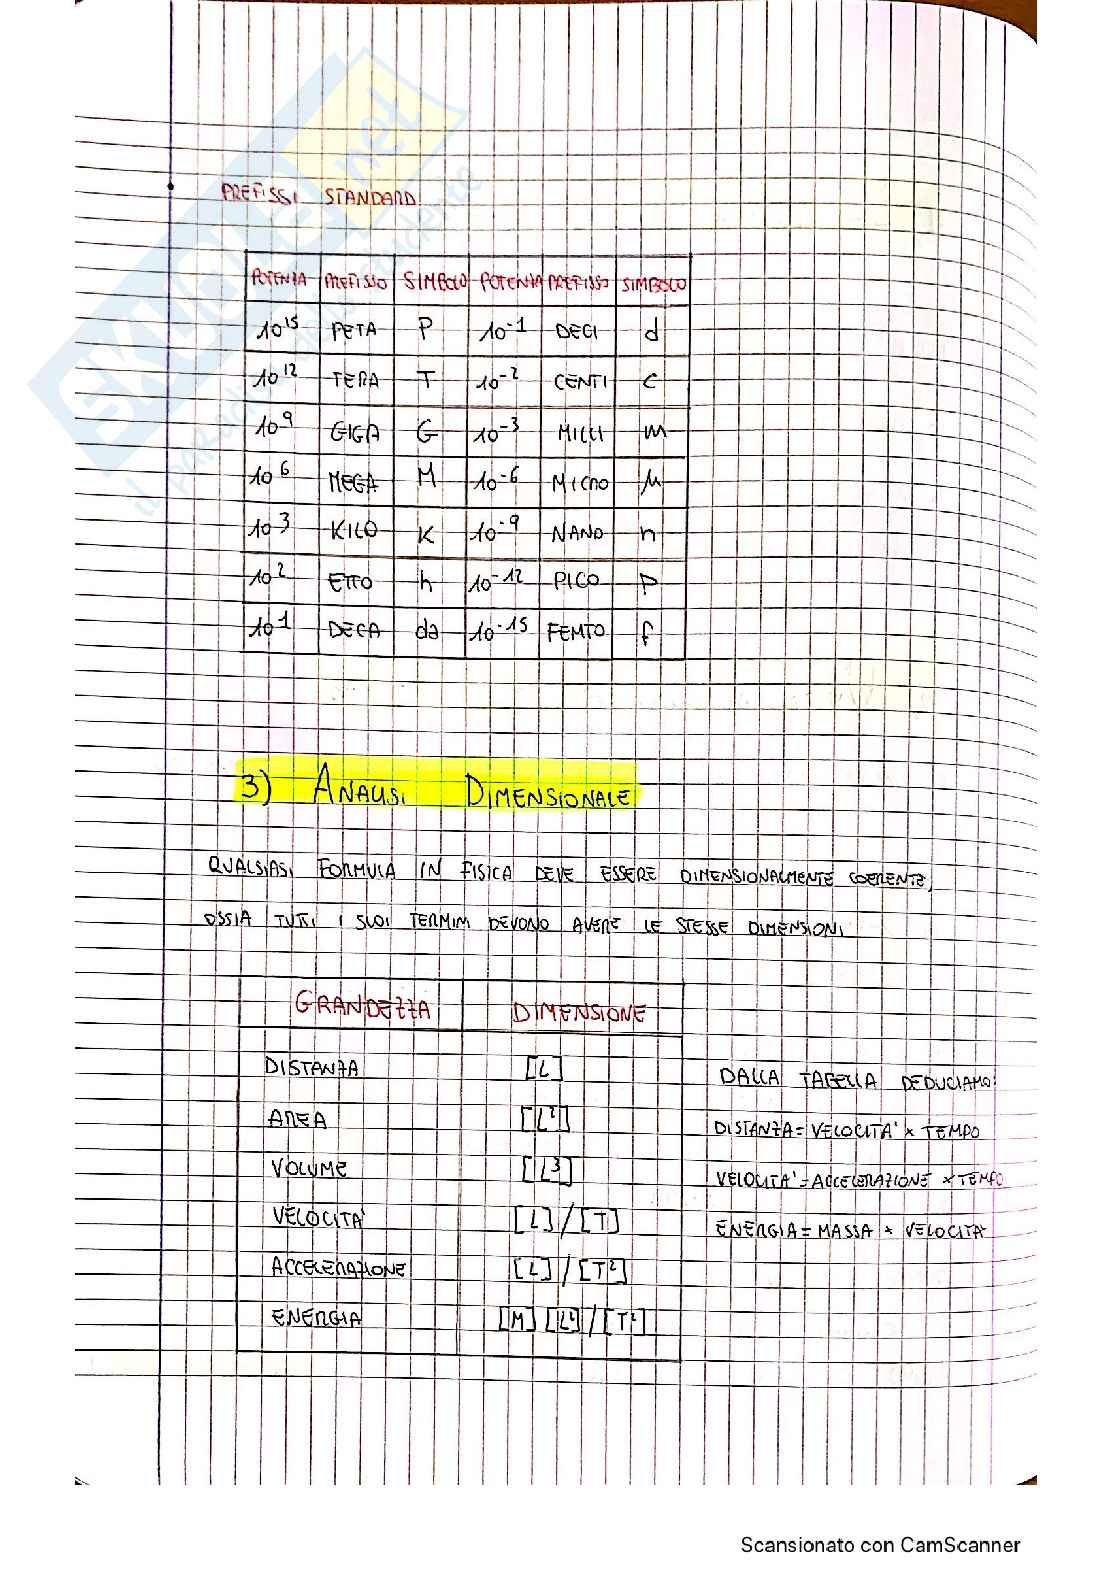 PREFISSI STANDARD
POTENZA PREFISSO SIMBOLO POTENZA PREFISSO SIMBOLO
10¹⁵ PETA P 10⁻¹ DECI d
10¹² TERA T 10⁻² CENTI c
10⁹ GIGA G 10⁻³ MILLI m
10⁶ MEGA M 10⁻⁶ MICRO μ
10³ KILO K 10⁻⁹ NANO n
10² ETTO h 10⁻¹² PICO p
10¹ DECA da 10⁻¹⁵ FEMTO f
3) ANALISI DIMENSIONALE
QUALSIASI FORMULA IN FISICA DEVE ESSERE DIMENSIONALMENTE COERENTE,
OSSIA TUTTI I SUOI TERMINI DEVONO AVERE LE STESSE DIMENSIONI
GRANDEZZA DIMENSIONE
DISTANZA [L]
AREA [L²]
VOLUME [L³]
VELOCITA' [L]/[T]
ACCELERAZIONE [L]/[T²]
ENERGIA [M][L²]/[T²]
DALLA TABELLA DEDUCIAMO:
DISTANZA = VELOCITA' × TEMPO
VELOCITA' = ACCELERAZIONE × TEMPO
ENERGIA = MASSA × VELOCITA'
Skuola.net
Scansionato con CamScanner